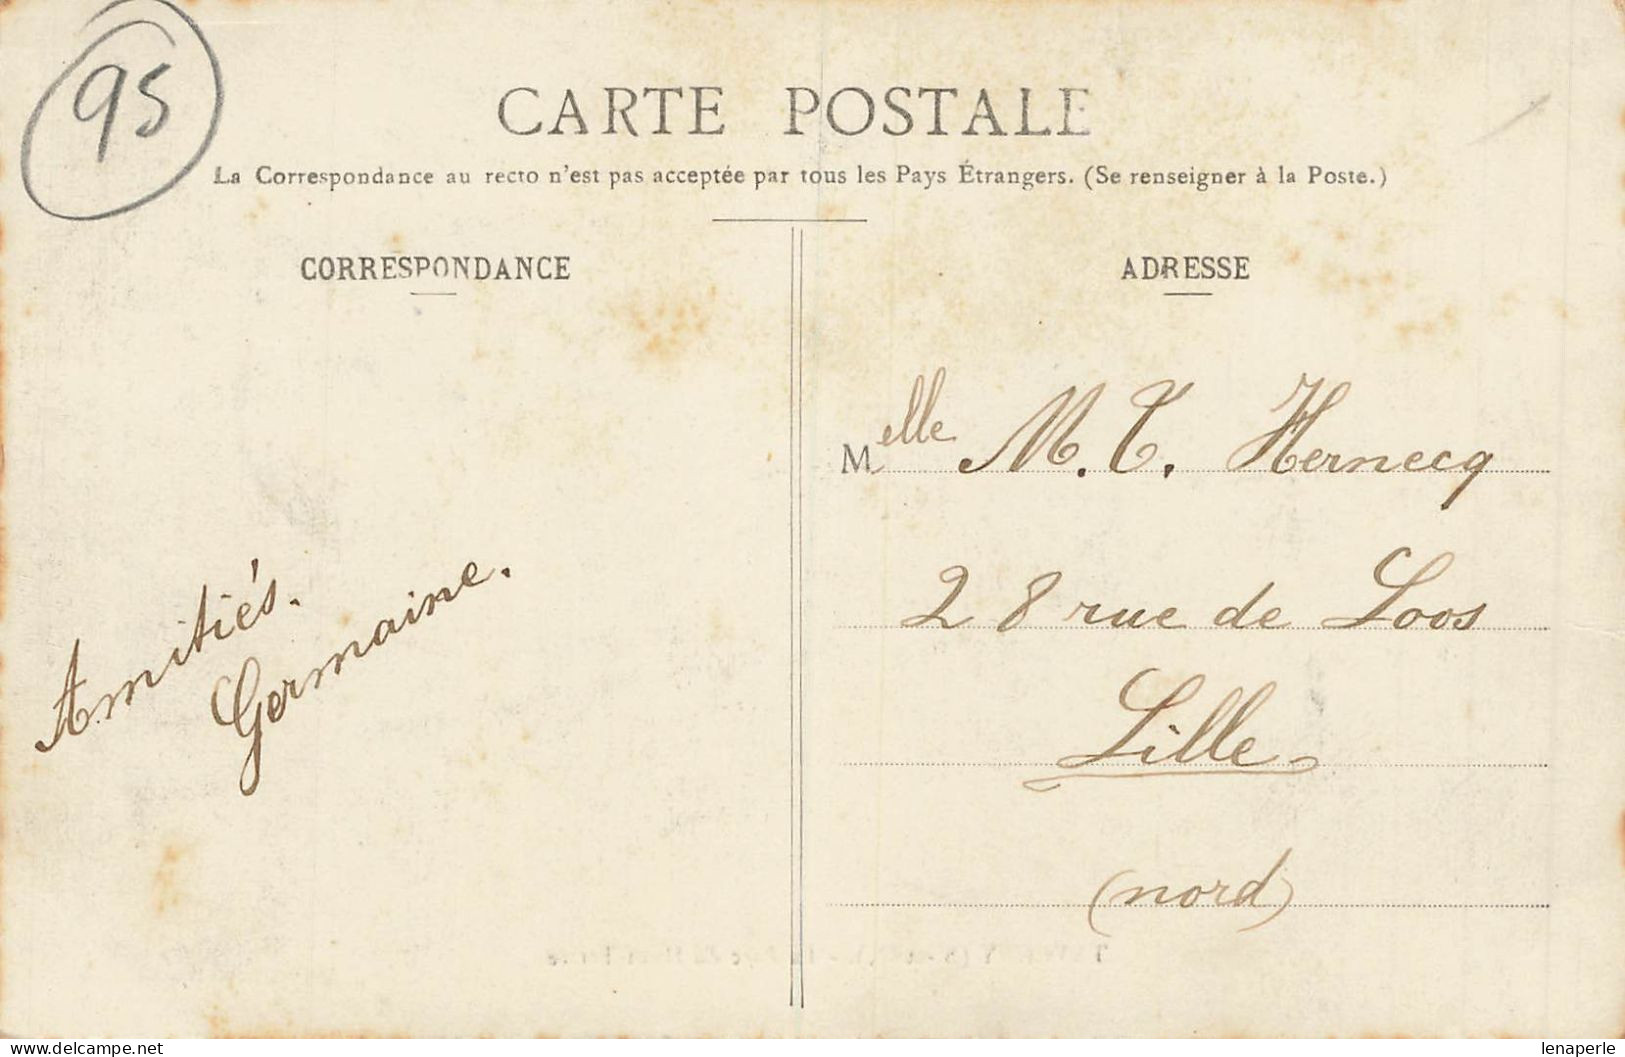 95
CARTE POSTALE
La Correspondance au recto n'est pas acceptée par tous les Pays Étrangers. (Se renseigner à la Poste.)
CORRESPONDANCE
Amitiés.
Germaine.
ADRESSE
Melle M. T. Hernecq
28 rue de Loos
Lille
(nord)
lenaperle